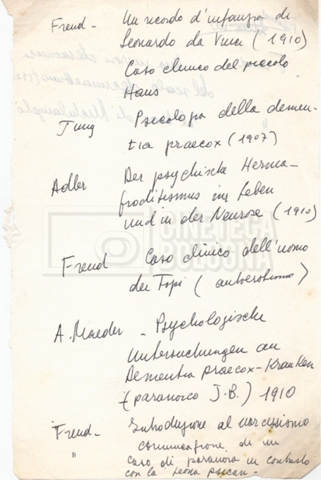 Freud - Un ricordo d'infanzia di
Leonardo da Vinci (1910)
Caso clinico del piccolo
Hans
Jung Psicologia della demen-
tia praecox (1907)
Adler Der psychische Herma-
froditismus im Leben
und in der Neurose (1910)
CINETECA
BOLOGNA
Freud Caso clinico dell'uomo
dei Topi (autoerotismo)
A. Maeder - Psychologische
Untersuchungen an
Dementia praecox-Kranken
(paranoico J.B.) 1910
Freud - Introduzione al narcisismo
" comunicazione di un
caso di paranoia in contrasto
con la teoria psican-